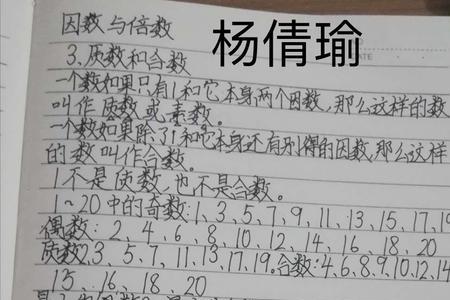 因数与倍数
杨倩瑜
3、质数和合数
DATE
一个数如果只有1和它本身两个因数,那么这样的数
叫作质数或素数。
一个数如果除了1和它本身还有别得的因数,那么这样
的数叫作合数。
1不是质数,也不是合数。
1~20中的奇数:1、3、5、7、9、11、13、15、17、19
偶数:2、4、6、8、10、12、14、16、18、20
质数2、3、5、7、11、13、17、19。合数:4、6、8、9、10、12、14
15、16、18、20